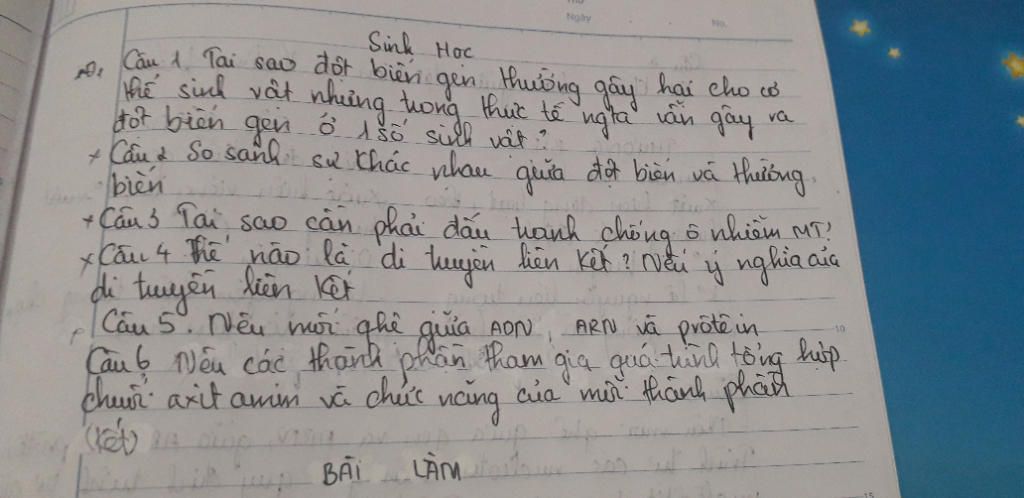 Ngày
No.
Sinh Học
Câu 1 Tại sao đột biến gen thường gây hại cho cơ
thể sinh vật nhưng trong thực tế ngta vẫn gây ra
đột biến gen ở 1 số sinh vật?
+ Câu 2 So sánh sự khác nhau giữa đột biến và thường
biến
+ Câu 3 Tại sao cần phải đấu tranh chống ô nhiễm MT?
x Câu 4 Thế nào là di truyền liên kết? Nêu ý nghĩa của
di truyền liên kết
Câu 5. Nêu mối qhê giữa ADN, ARN và prôtêin
10
Câu 6 Nêu các thành phần tham gia quá trình tổng hợp
chuỗi axit amin và chức năng của mỗi thành phần
(Kết)
BÀI LÀM
15